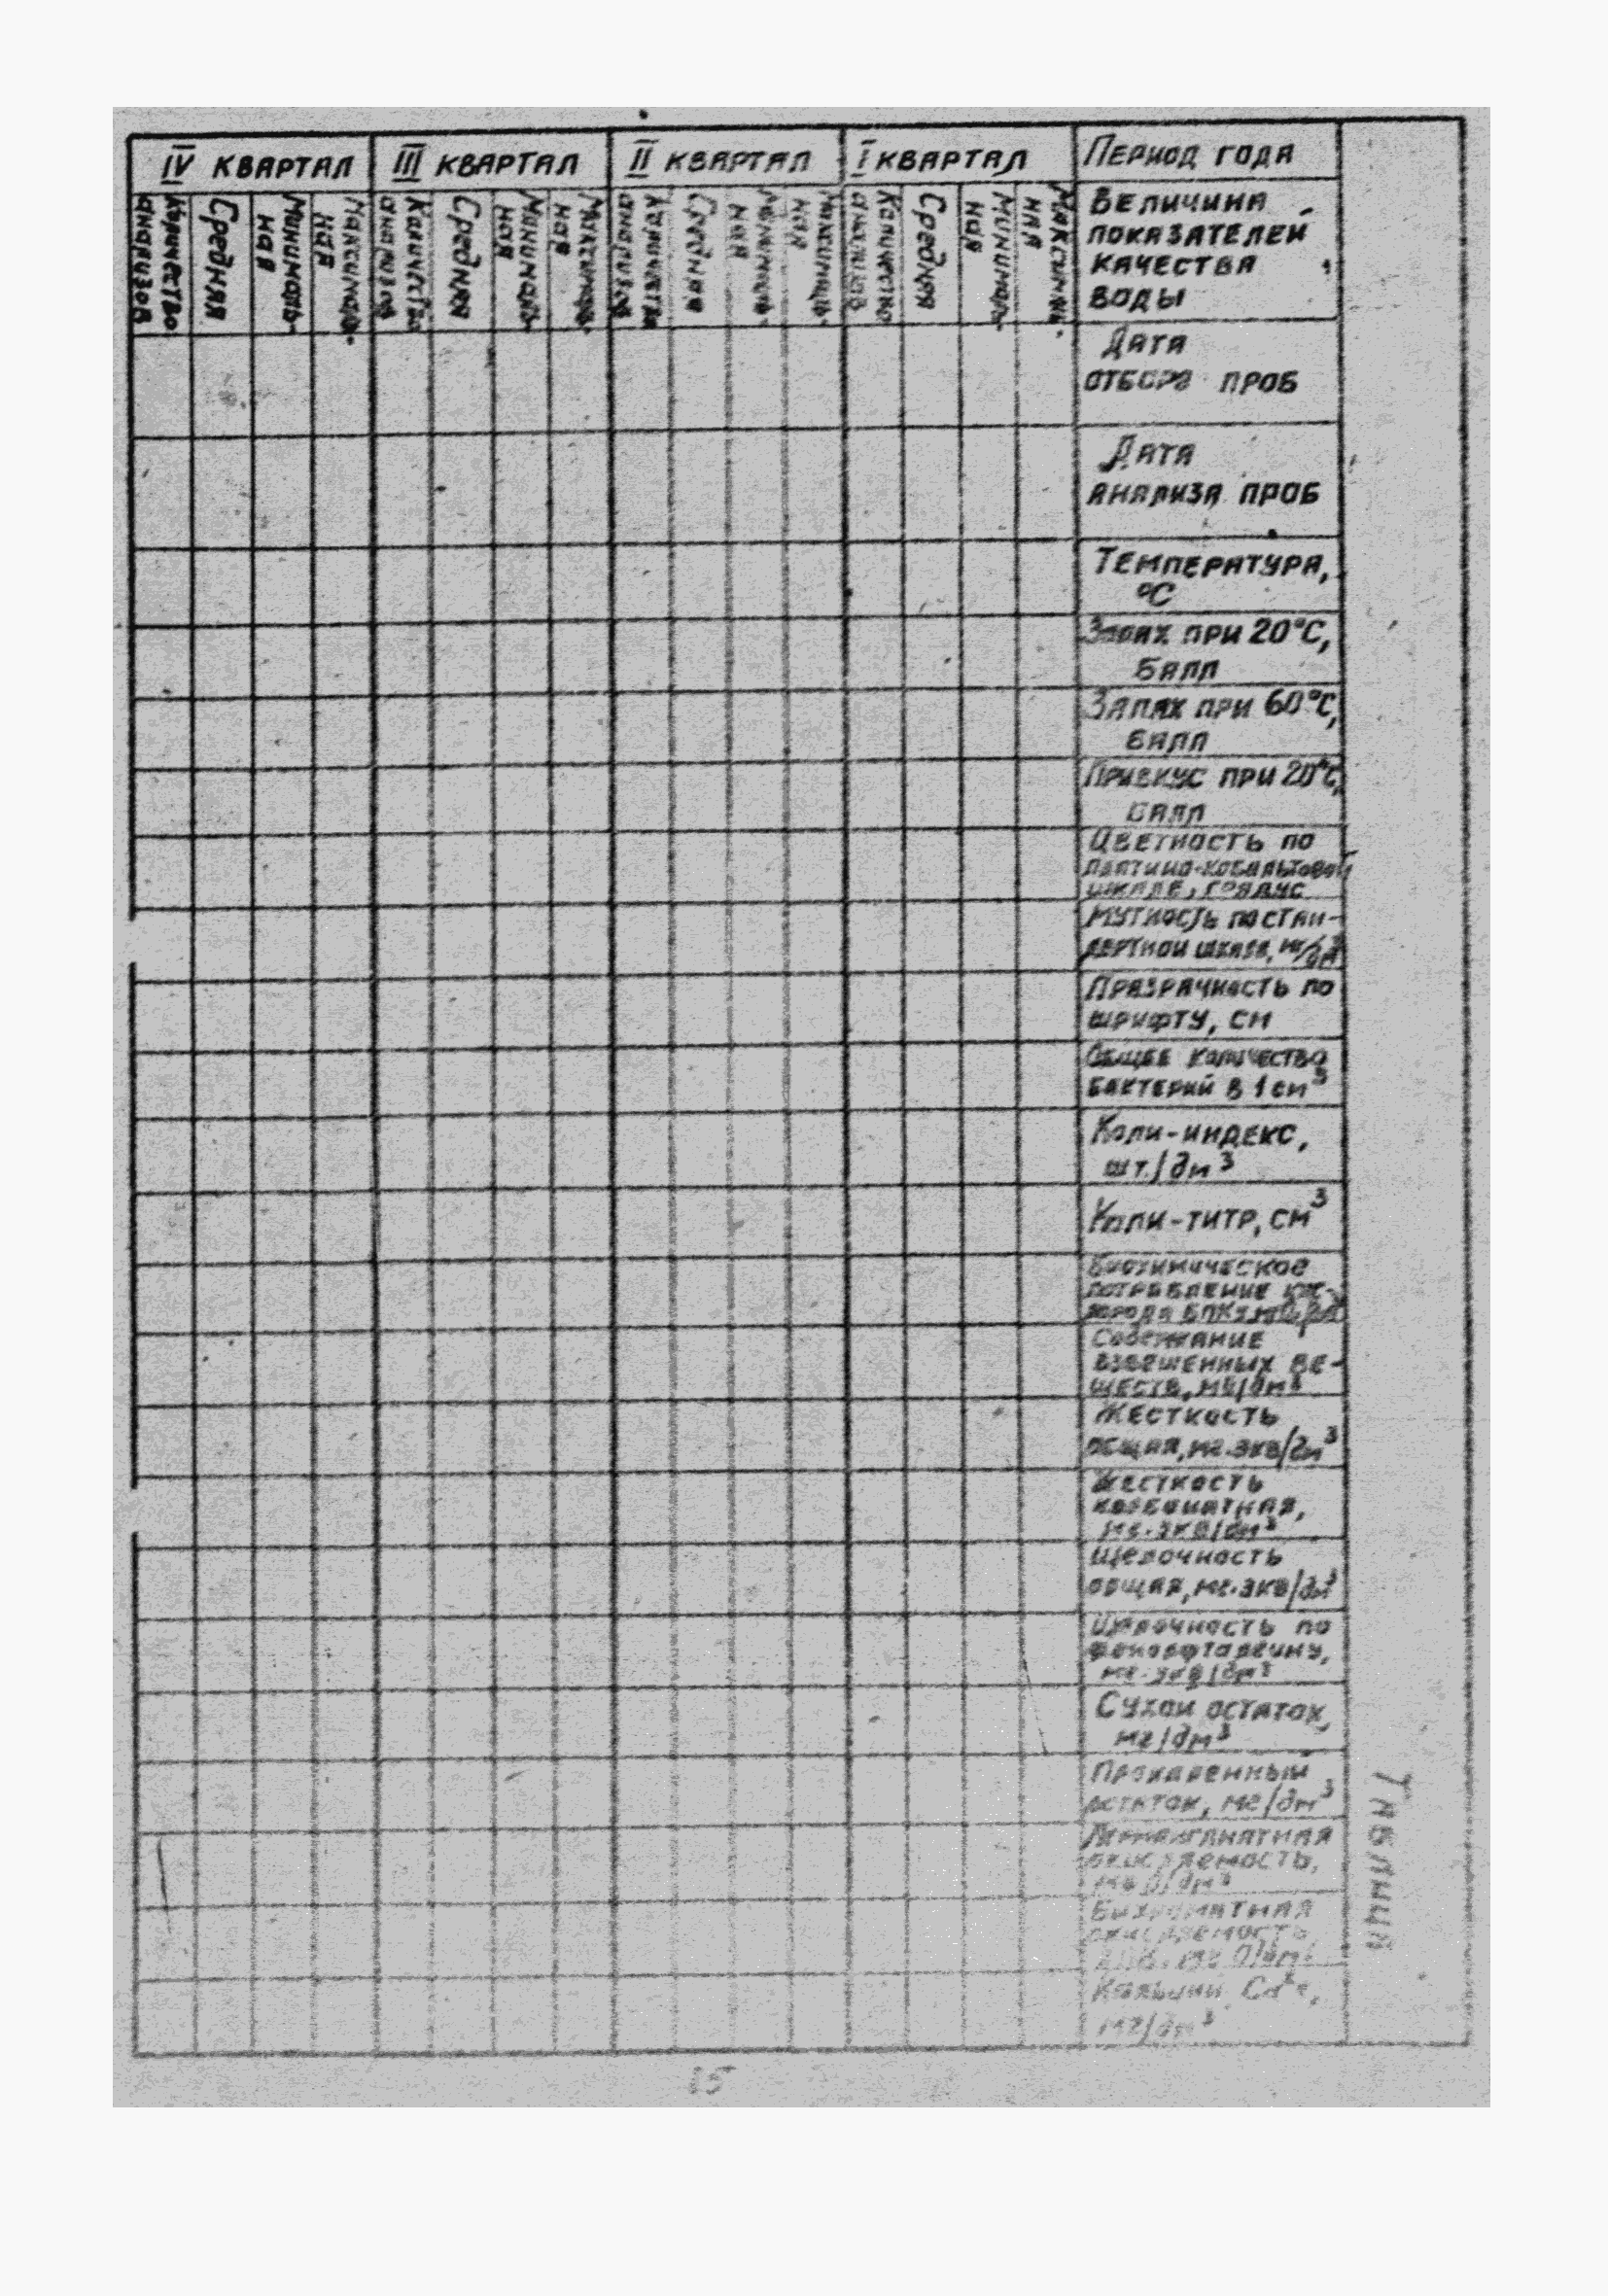 IV КВАРТАЛ
III КВАРТАЛ
II КВАРТАЛ
I КВАРТАЛ
ПЕРИОД ГОДА
Количество
анализов
Средняя
Минималь-
ная
Максималь-
ная
Количество
анализов
Средняя
Минималь-
ная
Максималь-
ная
Количество
анализов
Средняя
Минималь-
ная
Максималь-
ная
Количество
анализов
Средняя
Минималь-
ная
Максималь-
ная
ВЕЛИЧИНА
ПОКАЗАТЕЛЕЙ
КАЧЕСТВА
ВОДЫ
ДАТА
ОТБОРА ПРОБ
ДАТА
АНАЛИЗА ПРОБ
ТЕМПЕРАТУРА,
°С
ЗАПАХ ПРИ 20°С,
БАЛЛ
ЗАПАХ ПРИ 60°С,
БАЛЛ
ПРИВКУС ПРИ 20°С,
БАЛЛ
ЦВЕТНОСТЬ ПО
ПЛАТИНО-КОБАЛЬТОВОЙ
ШКАЛЕ, ГРАДУС
МУТНОСТЬ ПО СТАН-
ДАРТНОЙ ШКАЛЕ, мг/дм³
ПРОЗРАЧНОСТЬ ПО
ШРИФТУ, СМ
ОБЩЕЕ КОЛИЧЕСТВО
БАКТЕРИЙ В 1 см³
КОЛИ-ИНДЕКС,
шт./дм³
КОЛИ-ТИТР, СМ³
БИОХИМИЧЕСКОЕ
ПОТРЕБЛЕНИЕ КИС-
ЛОРОДА
СОДЕРЖАНИЕ
ВЗВЕШЕННЫХ ВЕ-
ЩЕСТВ, мг/дм³
ЖЕСТКОСТЬ
ОБЩАЯ, мг.экв/дм³
ЖЕСТКОСТЬ
КАРБОНАТНАЯ,
мг.экв/дм³
ЩЕЛОЧНОСТЬ
ОБЩАЯ, мг.экв/дм³
ЩЕЛОЧНОСТЬ ПО
ФЕНОЛФТАЛЕИНУ,
мг.экв/дм³
СУХОЙ ОСТАТОК,
мг/дм³
ПРОКАЛЕННЫЙ
ОСТАТОК, мг/дм³
ПЕРМАНГАНАТНАЯ
ОКИСЛЯЕМОСТЬ,
мг О/дм³
БИХРОМАТНАЯ
ОКИСЛЯЕМОСТЬ
мг О/дм³
КАЛЬЦИЙ Ca²⁺,
мг/дм³
ТАБЛИЦА
15